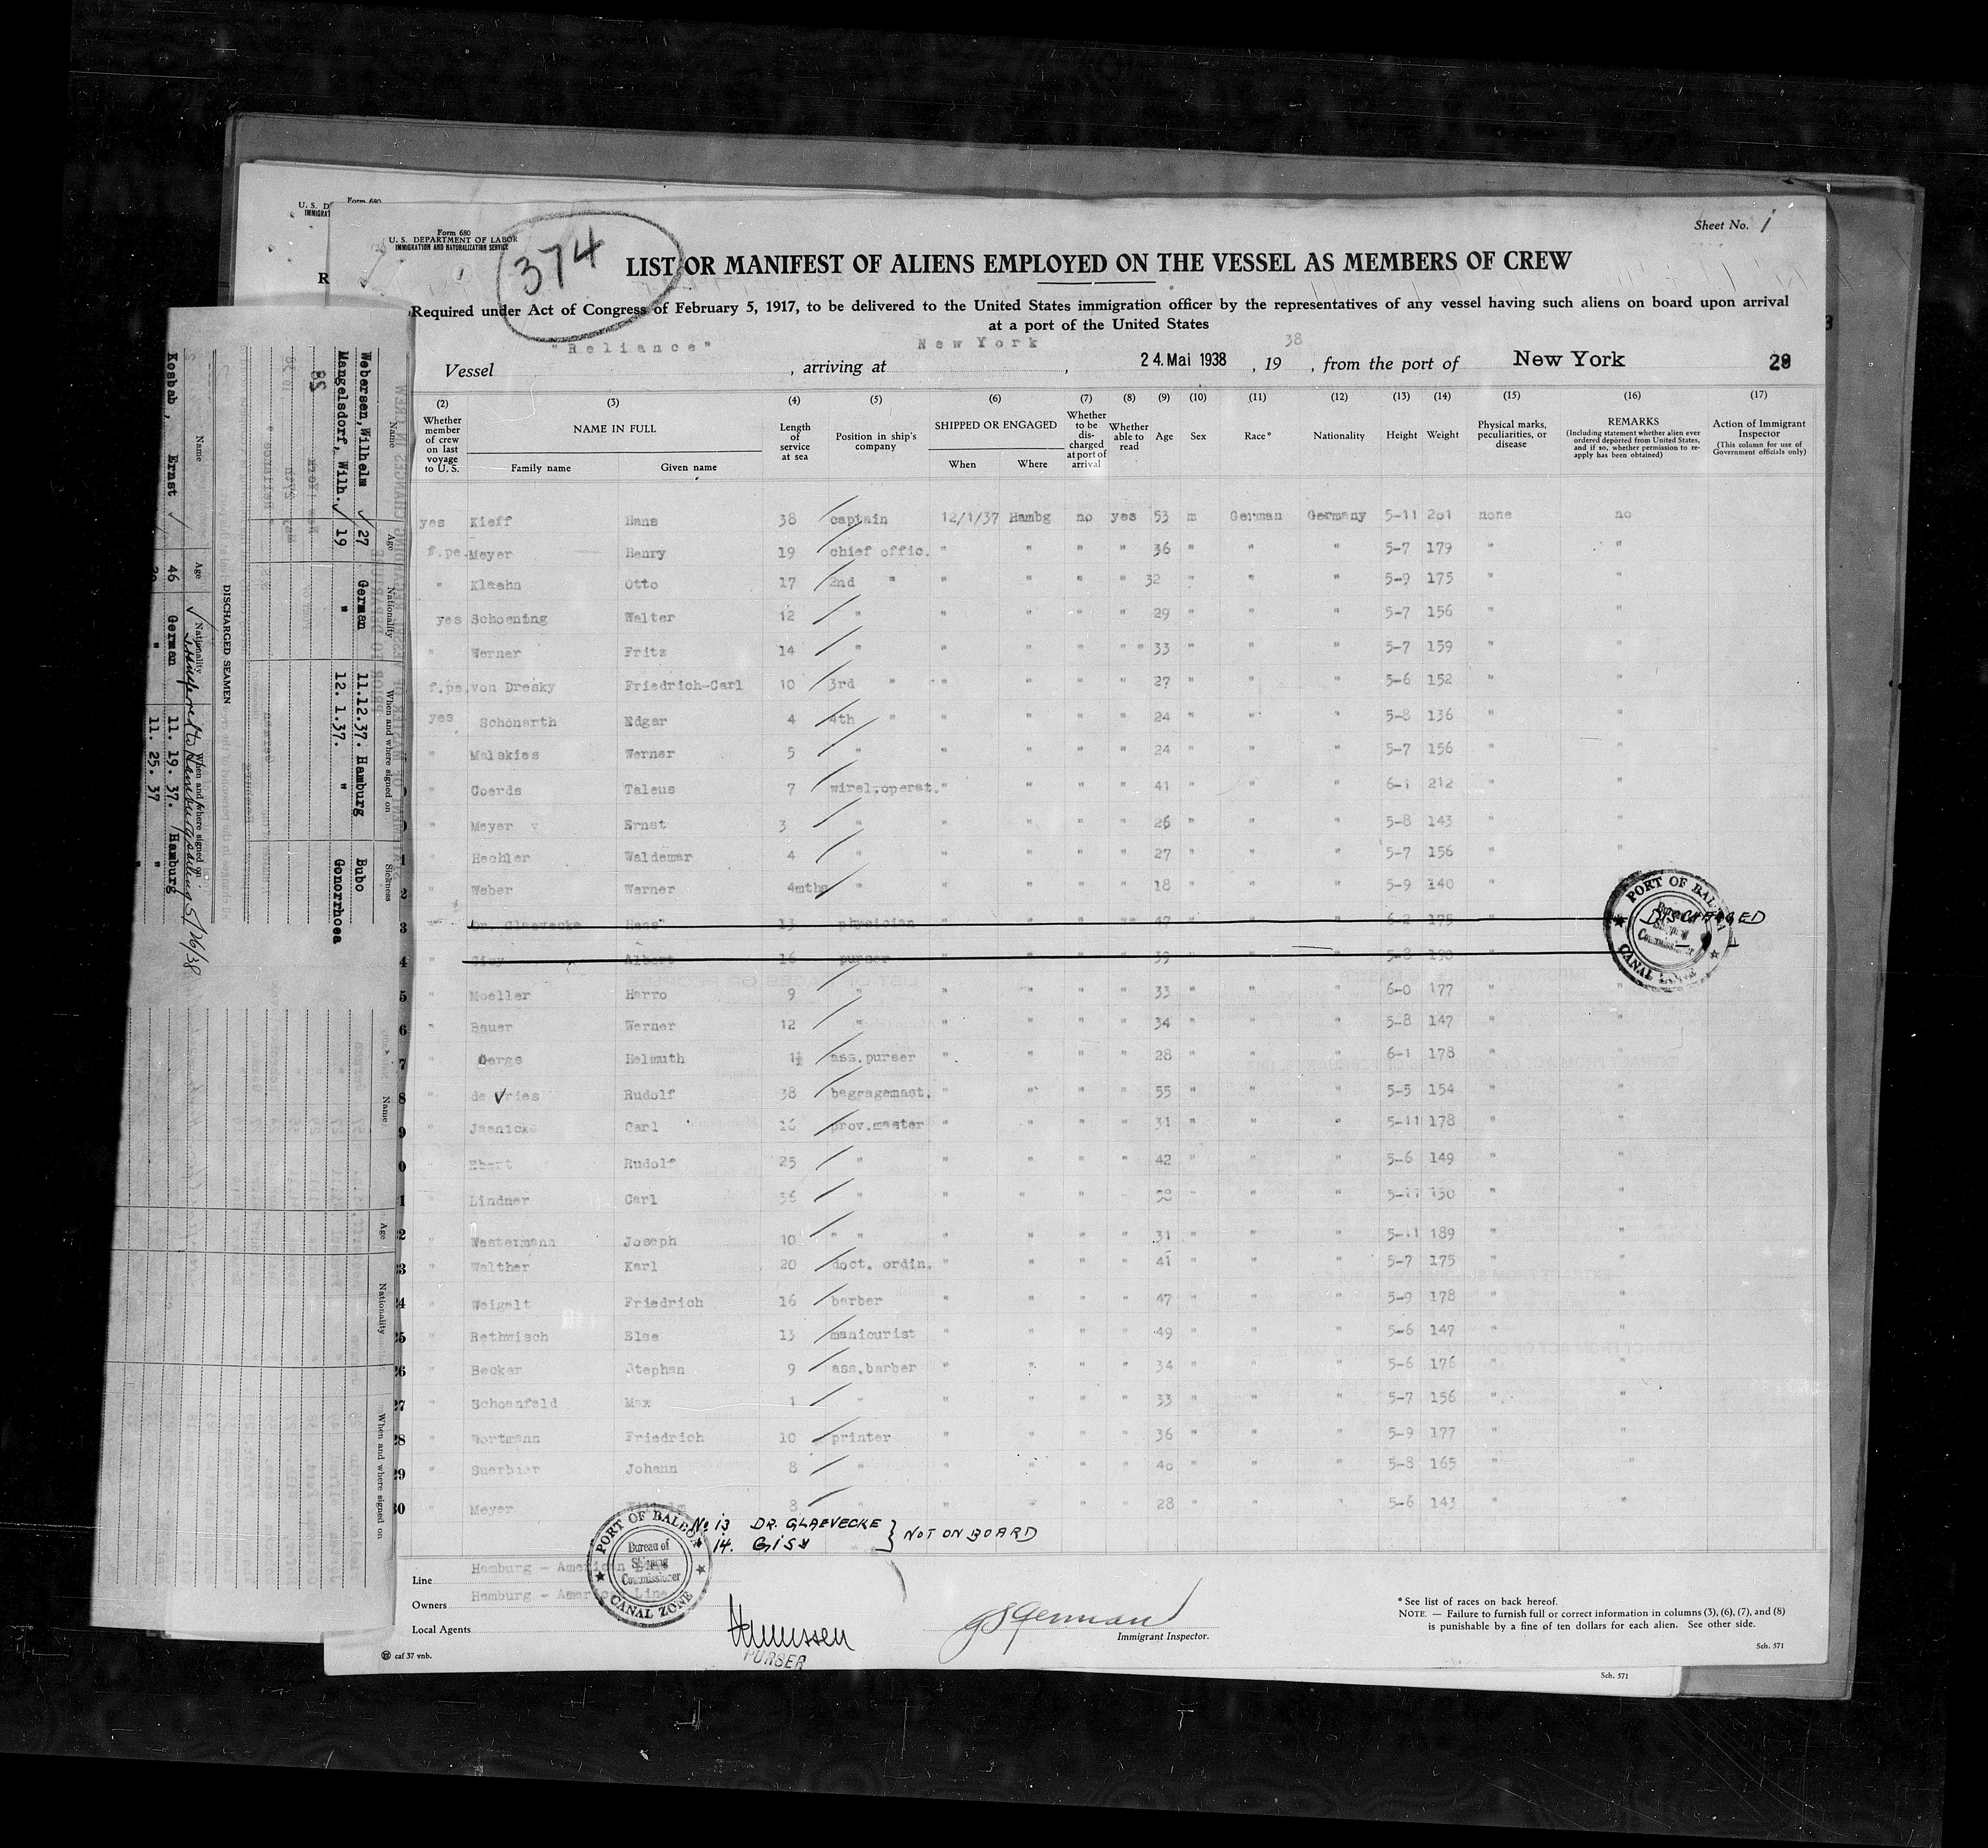 Form 680
U. S. DEPARTMENT OF LABOR
IMMIGRATION AND NATURALIZATION SERVICE
374
Sheet No. 1
LIST OR MANIFEST OF ALIENS EMPLOYED ON THE VESSEL AS MEMBERS OF CREW
Required under Act of Congress of February 5, 1917, to be delivered to the United States immigration officer by the representatives of any vessel having such aliens on board upon arrival
at a port of the United States
Vessel "Reliance", arriving at New York, 24. Mai 1938, 19 38, from the port of New York 29
(2) (3) (4) (5) (6) (7) (8) (9) (10) (11) (12) (13) (14) (15) (16) (17)
Whether member of crew on last voyage to U. S. NAME IN FULL Family name Given name Length of service at sea Position in ship's company SHIPPED OR ENGAGED When Where Whether to be discharged at port of arrival Whether able to read Age Sex Race* Nationality Height Weight Physical marks, peculiarities, or disease REMARKS (Including statement whether alien ever ordered deported from United States, and if so, whether permission to reapply has been obtained) Action of Immigrant Inspector (This column for use of Government officials only)
yes Kieff Hans 38 captain 12/1/37 Hambg no yes 53 m German Germany 5-11 201 none no
f.pe. Meyer Henry 19 chief offic. " " " " 36 " " " 5-7 179 " "
" Klaehn Otto 17 2nd " " " " " 32 " " " 5-9 175 " "
yes Schoening Walter 12 " " " " " 29 " " " 5-7 156 " "
" Werner Fritz 14 " " " " " 33 " " " 5-7 159 " "
f.pe. von Dresky Friedrich-Carl 10 3rd " " " " " 27 " " " 5-6 152 " "
yes Schönarth Edgar 4 4th " " " " " 24 " " " 5-8 136 " "
" Malskies Werner 5 " " " " " 24 " " " 5-7 156 " "
" Coerds Taleus 7 wirel.operat. " " " " 41 " " " 6-1 212 " "
" Meyer Ernst 3 " " " " " 26 " " " 5-8 143 " "
" Hechler Waldemar 4 " " " " " 27 " " " 5-7 156 " "
2 " Weber Werner 4mths " " " " " 18 " " " 5-9 140 "
3 " Dr. Glaevecke Hans 13 physician " " " " 47 " " " 6-2 175 " DISCHARGED
4 " Gisy Albert 16 purser " " " " 39 " " " 5-8 190 "
5 " Moeller Harro 9 " " " " " 33 " " " 6-0 177 " "
6 " Bauer Werner 12 " " " " " 34 " " " 5-8 147 " "
7 " Gergs Helmuth 1½ ass.purser " " " " 28 " " " 6-1 178 " "
8 " de Vries Rudolf 38 baggagemast. " " " " 55 " " " 5-5 154 " "
9 " Jaenicke Carl 16 prov.master " " " " 31 " " " 5-11 178 " "
0 " Ebert Rudolf 25 " " " " " 42 " " " 5-6 149 " "
1 Lindner Carl 36 " " " " " " " " 5-11 150 " "
2 " Westermann Joseph 10 " " " " " " 31 " " " 5-11 189 " "
3 " Walther Karl 20 doct. ordin. " " " " 41 " " " 5-7 175 " "
24 " Weigelt Friedrich 16 barber " " " " 47 " " " 5-9 178 " "
25 " Rethwisch Else 13 manicurist " " " " 49 " " " 5-6 147 " "
26 " Becker Stephan 9 ass.barber " " " " 34 " " " 5-6 176 " "
27 " Schoenfeld Max 1 " " " " " 33 " " " 5-7 156 " "
28 " Wortmann Friedrich 10 printer " " " " 36 " " " 5-9 177 " "
29 " Suerbier Johann 8 " " " " " 40 " " " 5-8 165 " "
30 " Meyer 8 " " " " " 28 " " " 5-6 143 " "
PORT OF BALBOA
Bureau of Shipping Commissioner
CANAL ZONE
No 13 DR. GLAEVECKE
14. Gisy } NOT ON BOARD
PORT OF BALBOA
Bureau of Shipping Commissioner
CANAL ZONE
Line Hamburg - American Line
Owners Hamburg - American Line
Local Agents
PURSER
Immigrant Inspector.
* See list of races on back hereof.
NOTE. — Failure to furnish full or correct information in columns (3), (6), (7), and (8)
is punishable by a fine of ten dollars for each alien. See other side.
Sch. 571
caf 37 vnb.
Sch. 571
Form 680
U. S. D
IMMIGRAT
R
Name Age Nationality When and where signed on Sickness
Webersen, Wilhelm 27 German 11.12.37. Hamburg Bubo
Mangelsdorf, Wilh. 19 " 12. 1.37. " Gonorrhoea
DISCHARGED SEAMEN
Name Age Nationality When and where signed on
Transferred to Hamburg sailing 5/26/38
Kosbab, Ernst 46 German 11. 19. 37. Hamburg
" 11. 25. 37 "
Name Age Nationality When and where signed on